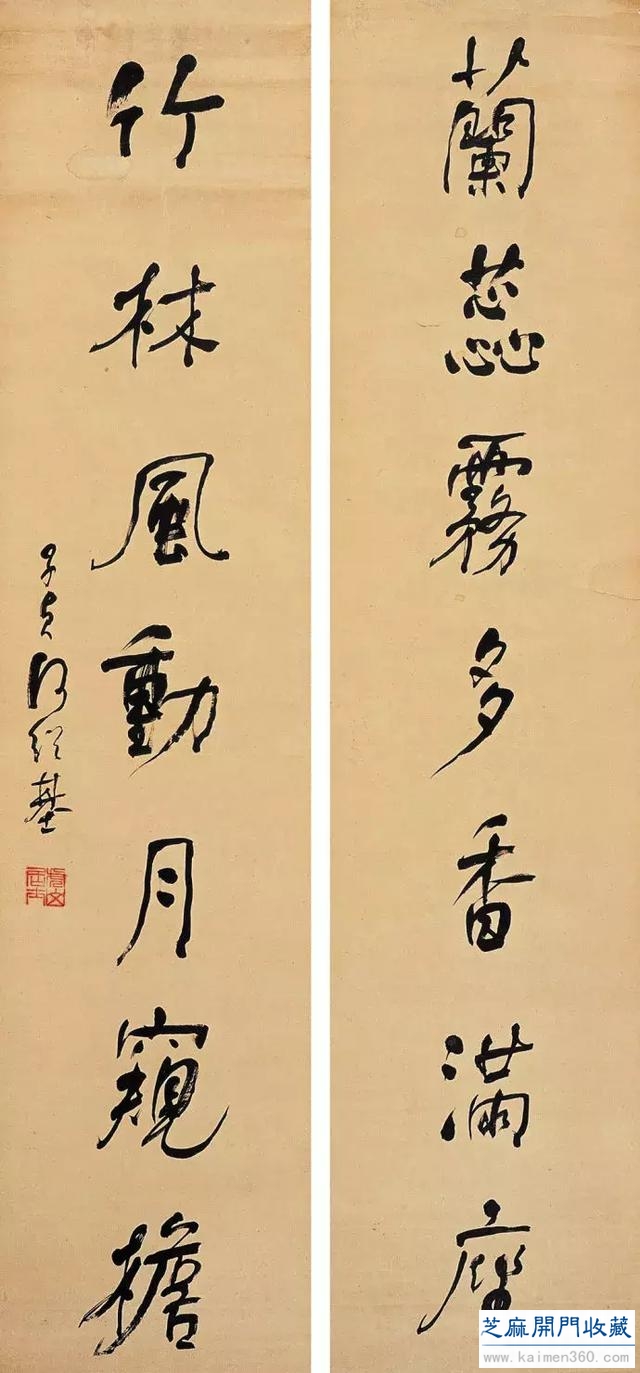 蘭蕊霧多香滿座
竹林風動月窺檐
子貞何紹基
芝麻開門收藏
www.kaimen360.com